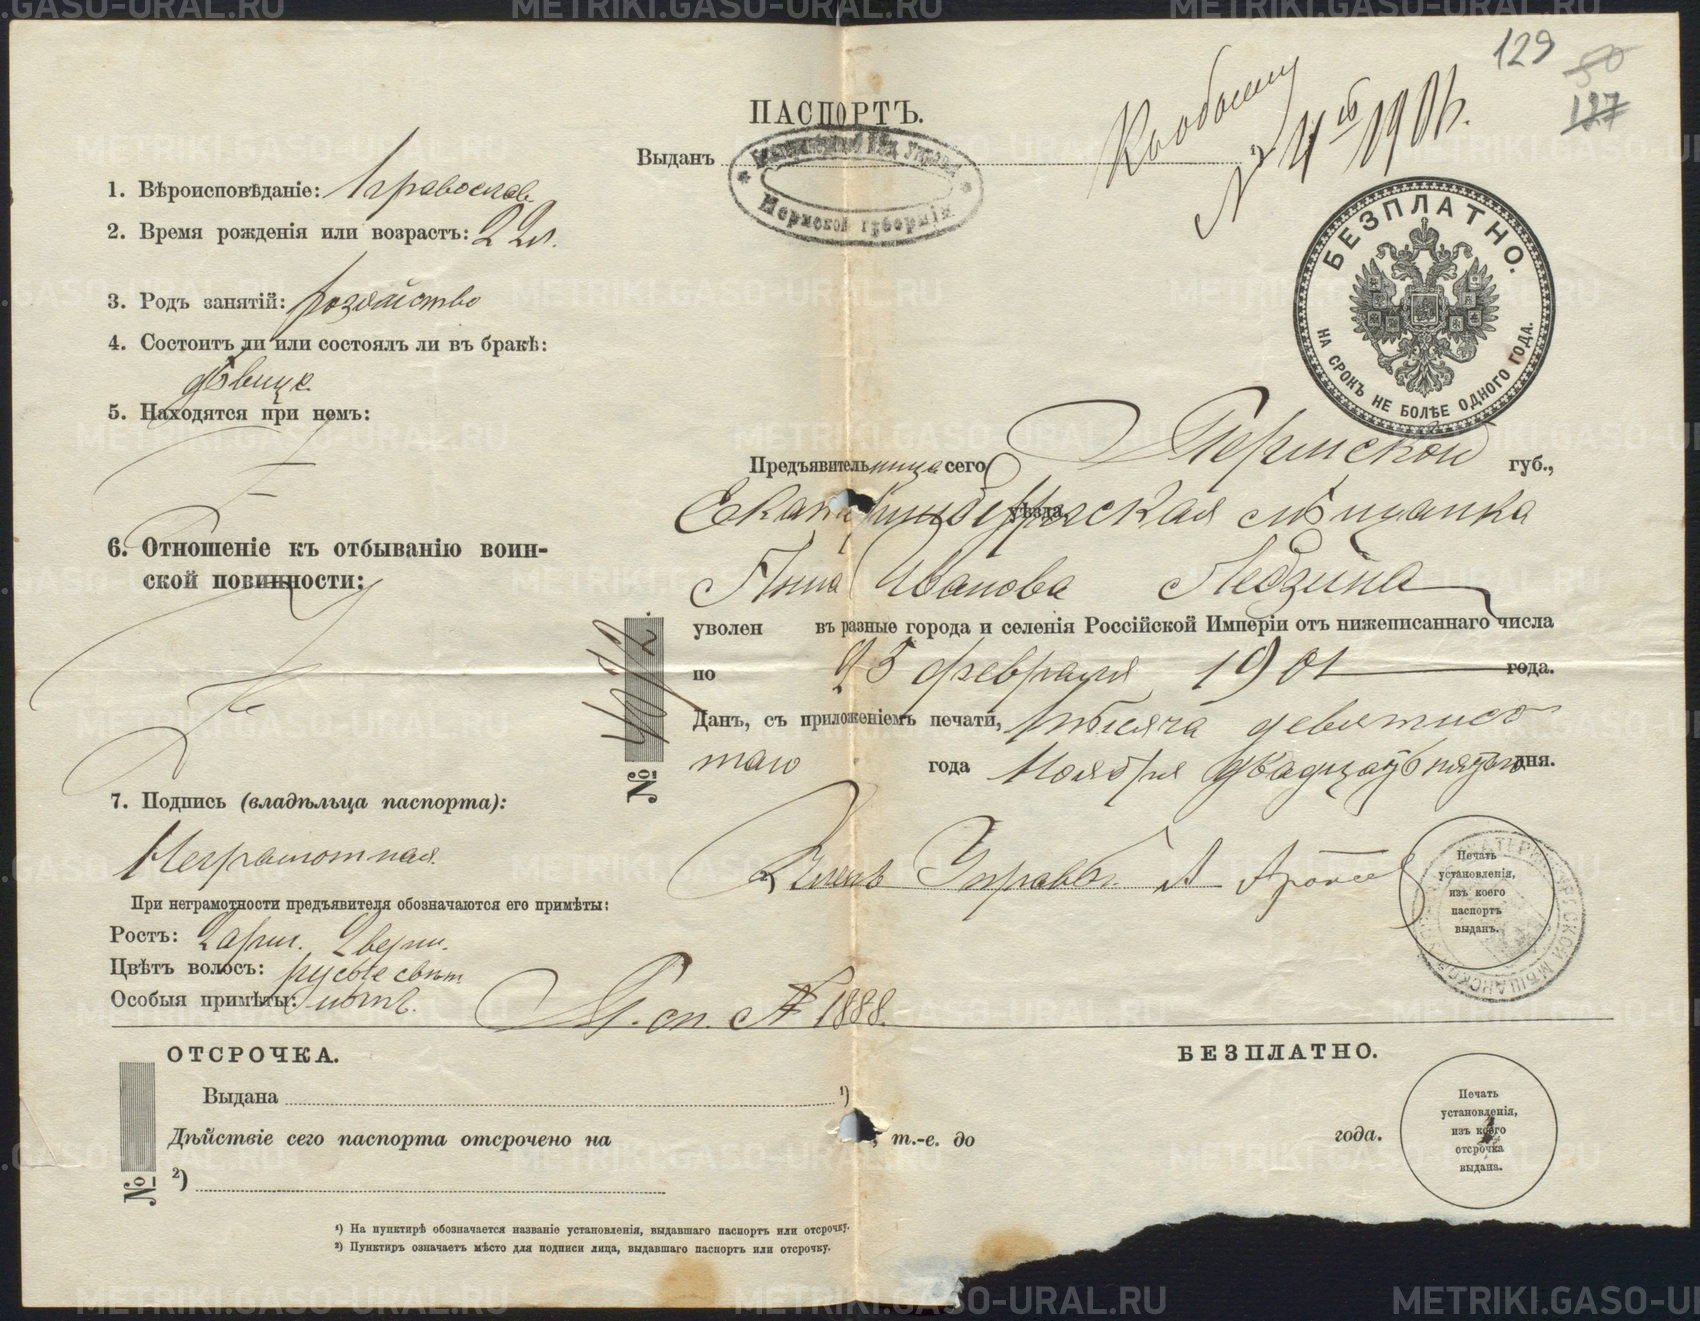 129
50
127
ПАСПОРТЪ.
Выданъ ¹)
Екатеринбургской губерніи
№ 4 1901.
БЕЗПЛАТНО.
НА СРОКЪ НЕ БОЛѢЕ ОДНОГО ГОДА.
1. Вѣроисповѣданіе: православ.
2. Время рожденія или возрастъ: 22 л.
3. Родъ занятій: хозяйство
4. Состоитъ ли или состоялъ ли въ бракѣ:
дѣвица
5. Находятся при немъ:
6. Отношеніе къ отбыванію воин-
ской повинности:
7. Подпись (владѣльца паспорта):
Неграмотная.
При неграмотности предъявителя обозначаются его примѣты:
Ростъ: 2 арш. 2 верш.
Цвѣтъ волосъ: русые свѣт.
Особыя примѣты: нѣтъ.
Предъявительница сего Пермской губ.,
Екатеринбургская уѣзда, мѣщанка
Анна Иванова
уволен въ разные города и селенія Россійской Имперіи отъ нижеписаннаго числа
по 25 февраля 1901 года.
Данъ, съ приложеніемъ печати, тысяча девятисо
таго года ноября двадцать пятаго дня.
№
Членъ Управы А
Печать
установленія,
изъ коего
паспортъ
выданъ.
М. сп. № 1888.
ОТСРОЧКА. БЕЗПЛАТНО.
Выдана ¹)
Дѣйствіе сего паспорта отсрочено на , т.-е. до года.
№
²)
Печать
установленія,
изъ коего
отсрочка
выдана.
¹) На пунктирѣ обозначается названіе установленія, выдавшаго паспортъ или отсрочку.
²) Пунктиръ означаетъ мѣсто для подписи лица, выдавшаго паспортъ или отсрочку.
METRIKI.GASO-URAL.RU